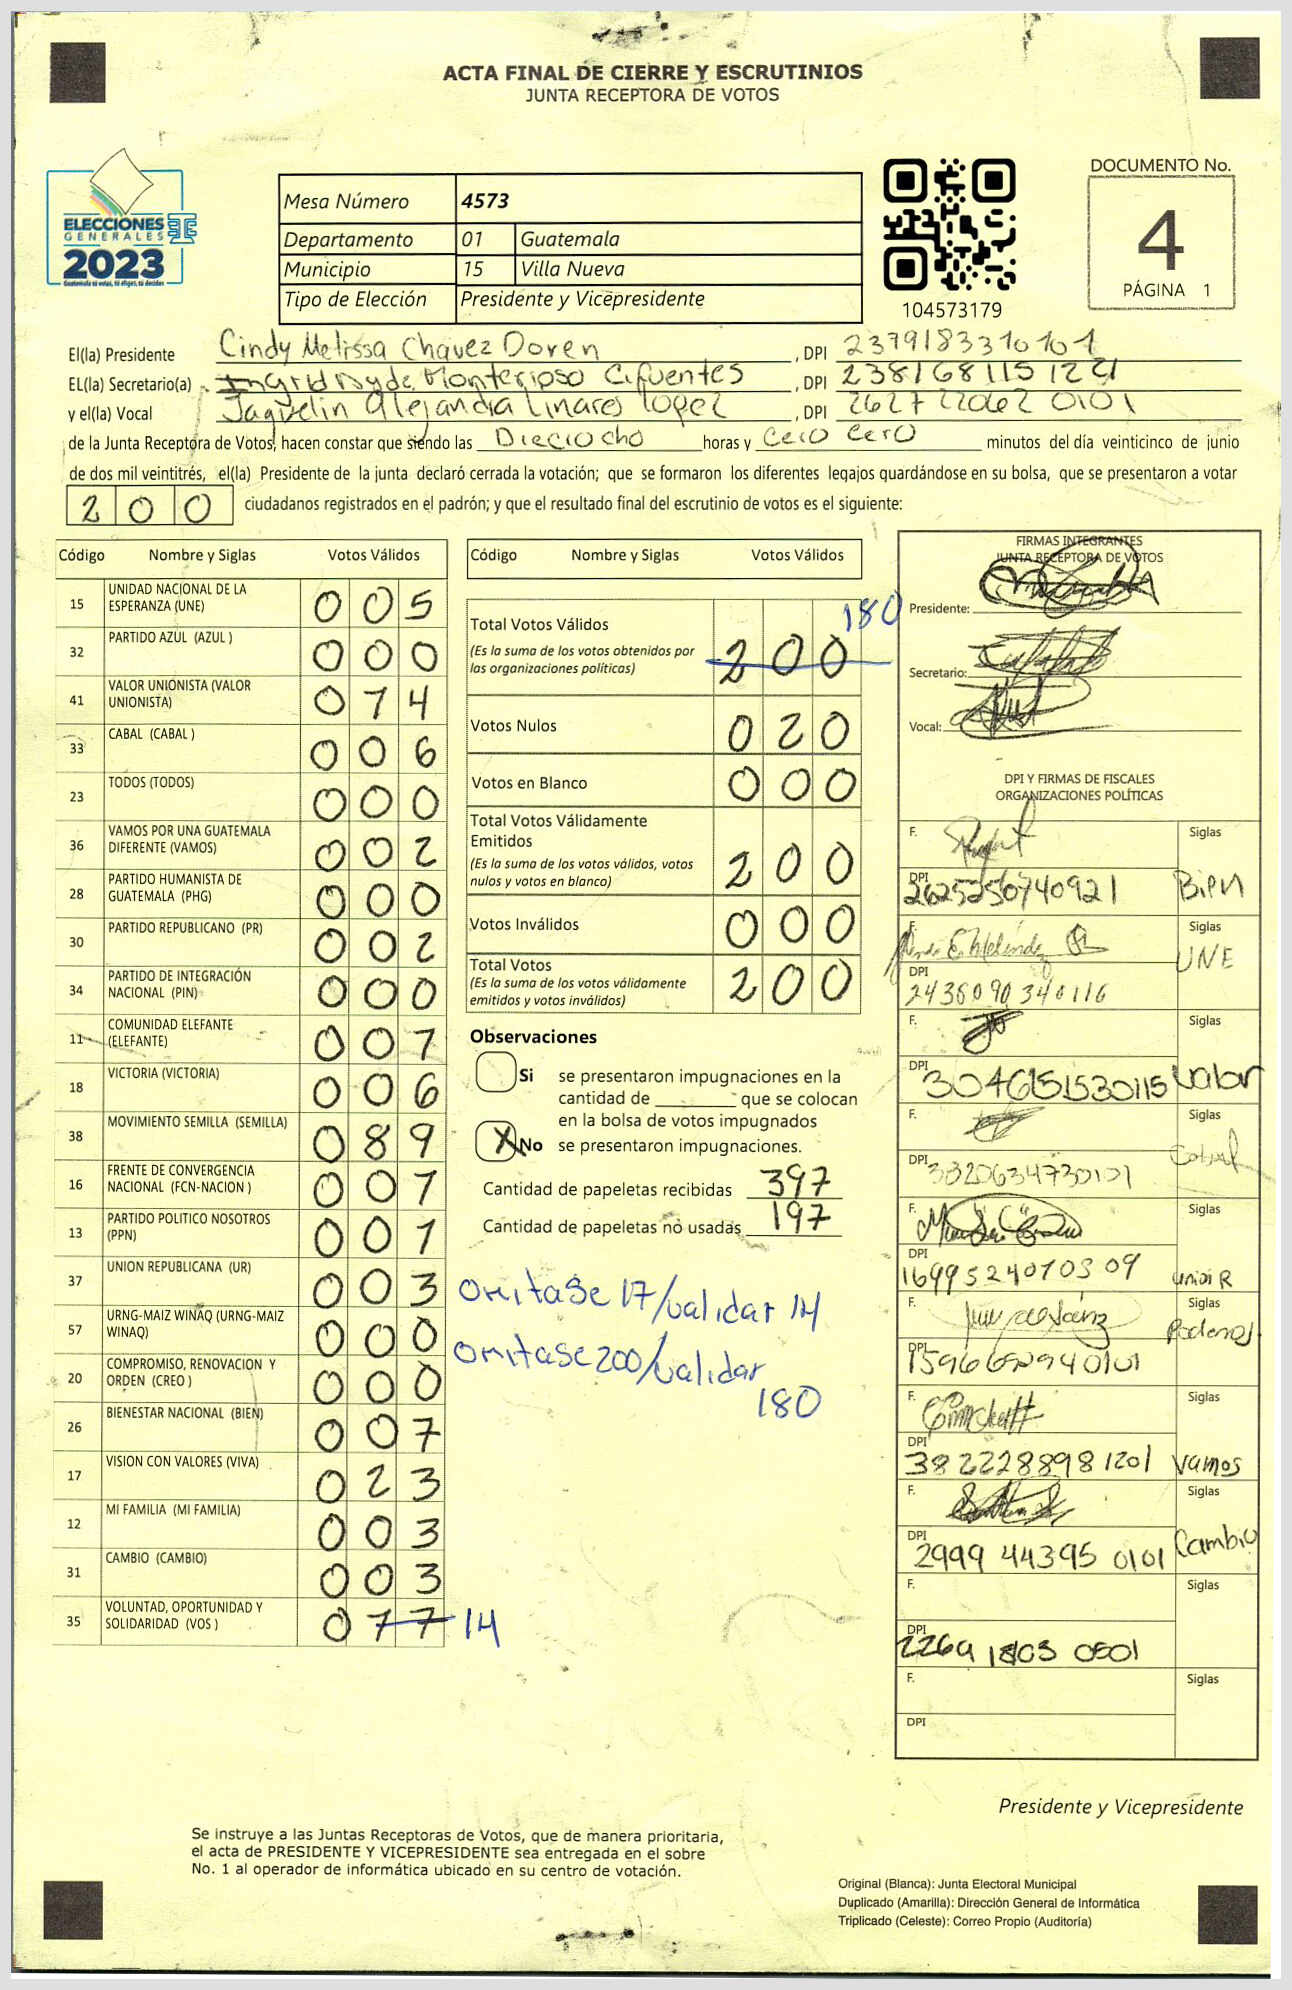 ACTA FINAL DE CIERRE Y ESCRUTINIOS
JUNTA RECEPTORA DE VOTOS
ELECCIONES
GENERALES
2023
Guatemala tú votas, tú eliges, tú decides
Mesa Número 4573
Departamento 01 Guatemala
Municipio 15 Villa Nueva
Tipo de Elección Presidente y Vicepresidente
104573179
DOCUMENTO No.
4
PÁGINA 1
El(la) Presidente Cindy Melissa Chavez Doren, DPI 2379183310101
EL(la) Secretario(a) Ingrid Nyde Monterroso Cifuentes, DPI
y el(la) Vocal Jaquelin Alejandra Linares Lopez, DPI 2627220620101
de la Junta Receptora de Votos, hacen constar que siendo las Dieciocho horas y cero cero minutos del día veinticinco de junio
de dos mil veintitrés, el(la) Presidente de la junta declaró cerrada la votación; que se formaron los diferentes legajos quardándose en su bolsa, que se presentaron a votar
200 ciudadanos registrados en el padrón; y que el resultado final del escrutinio de votos es el siguiente:
Código Nombre y Siglas Votos Válidos
15 UNIDAD NACIONAL DE LA ESPERANZA (UNE) 005
32 PARTIDO AZUL (AZUL ) 000
41 VALOR UNIONISTA (VALOR UNIONISTA) 074
33 CABAL (CABAL ) 006
23 TODOS (TODOS) 000
36 VAMOS POR UNA GUATEMALA DIFERENTE (VAMOS) 002
28 PARTIDO HUMANISTA DE GUATEMALA (PHG) 000
30 PARTIDO REPUBLICANO (PR) 002
34 PARTIDO DE INTEGRACIÓN NACIONAL (PIN) 000
11 COMUNIDAD ELEFANTE (ELEFANTE) 007
18 VICTORIA (VICTORIA) 006
38 MOVIMIENTO SEMILLA (SEMILLA) 089
16 FRENTE DE CONVERGENCIA NACIONAL (FCN-NACION ) 001
13 PARTIDO POLITICO NOSOTROS (PPN) 001
37 UNION REPUBLICANA (UR) 003
57 URNG-MAIZ WINAQ (URNG-MAIZ WINAQ) 000
20 COMPROMISO, RENOVACION Y ORDEN (CREO ) 000
26 BIENESTAR NACIONAL (BIEN) 007
17 VISION CON VALORES (VIVA) 023
12 MI FAMILIA (MI FAMILIA) 003
31 CAMBIO (CAMBIO) 003
35 VOLUNTAD, OPORTUNIDAD Y SOLIDARIDAD (VOS ) 077 14
Código Nombre y Siglas Votos Válidos
Total Votos Válidos 200 180
(Es la suma de los votos obtenidos por
las organizaciones políticas)
Votos Nulos 020
Votos en Blanco 000
Total Votos Válidamente
Emitidos 200
(Es la suma de los votos válidos, votos
nulos y votos en blanco)
Votos Inválidos 000
Total Votos 200
(Es la suma de los votos válidamente
emitidos y votos inválidos)
Observaciones
Si se presentaron impugnaciones en la
cantidad de que se colocan
en la bolsa de votos impugnados
X No se presentaron impugnaciones.
Cantidad de papeletas recibidas 397
Cantidad de papeletas no usadas 197
omitase 17/validar 14
omitase 200/validar
180
FIRMAS INTEGRANTES
JUNTA RECEPTORA DE VOTOS
Presidente:
Secretario:
Vocal:
DPI Y FIRMAS DE FISCALES
ORGANIZACIONES POLÍTICAS
F. Siglas
DPI 2625256740921 BIEN
F. Siglas
DPI 2436090340116 UNE
F. Siglas
DPI 3046151530115 Valor
F. Siglas
DPI 3320634730101 Cabal
F. Siglas
DPI 1699524070309 Union R
F. Siglas
DPI Podemos
F. Siglas
DPI 3822288981201 Vamos
F. Siglas
DPI 2999 44395 0101 Cambio
F. Siglas
DPI
F. Siglas
DPI
Presidente y Vicepresidente
Se instruye a las Juntas Receptoras de Votos, que de manera prioritaria,
el acta de PRESIDENTE Y VICEPRESIDENTE sea entregada en el sobre
No. 1 al operador de informática ubicado en su centro de votación.
Original (Blanca): Junta Electoral Municipal
Duplicado (Amarilla): Dirección General de Informática
Triplicado (Celeste): Correo Propio (Auditoría)